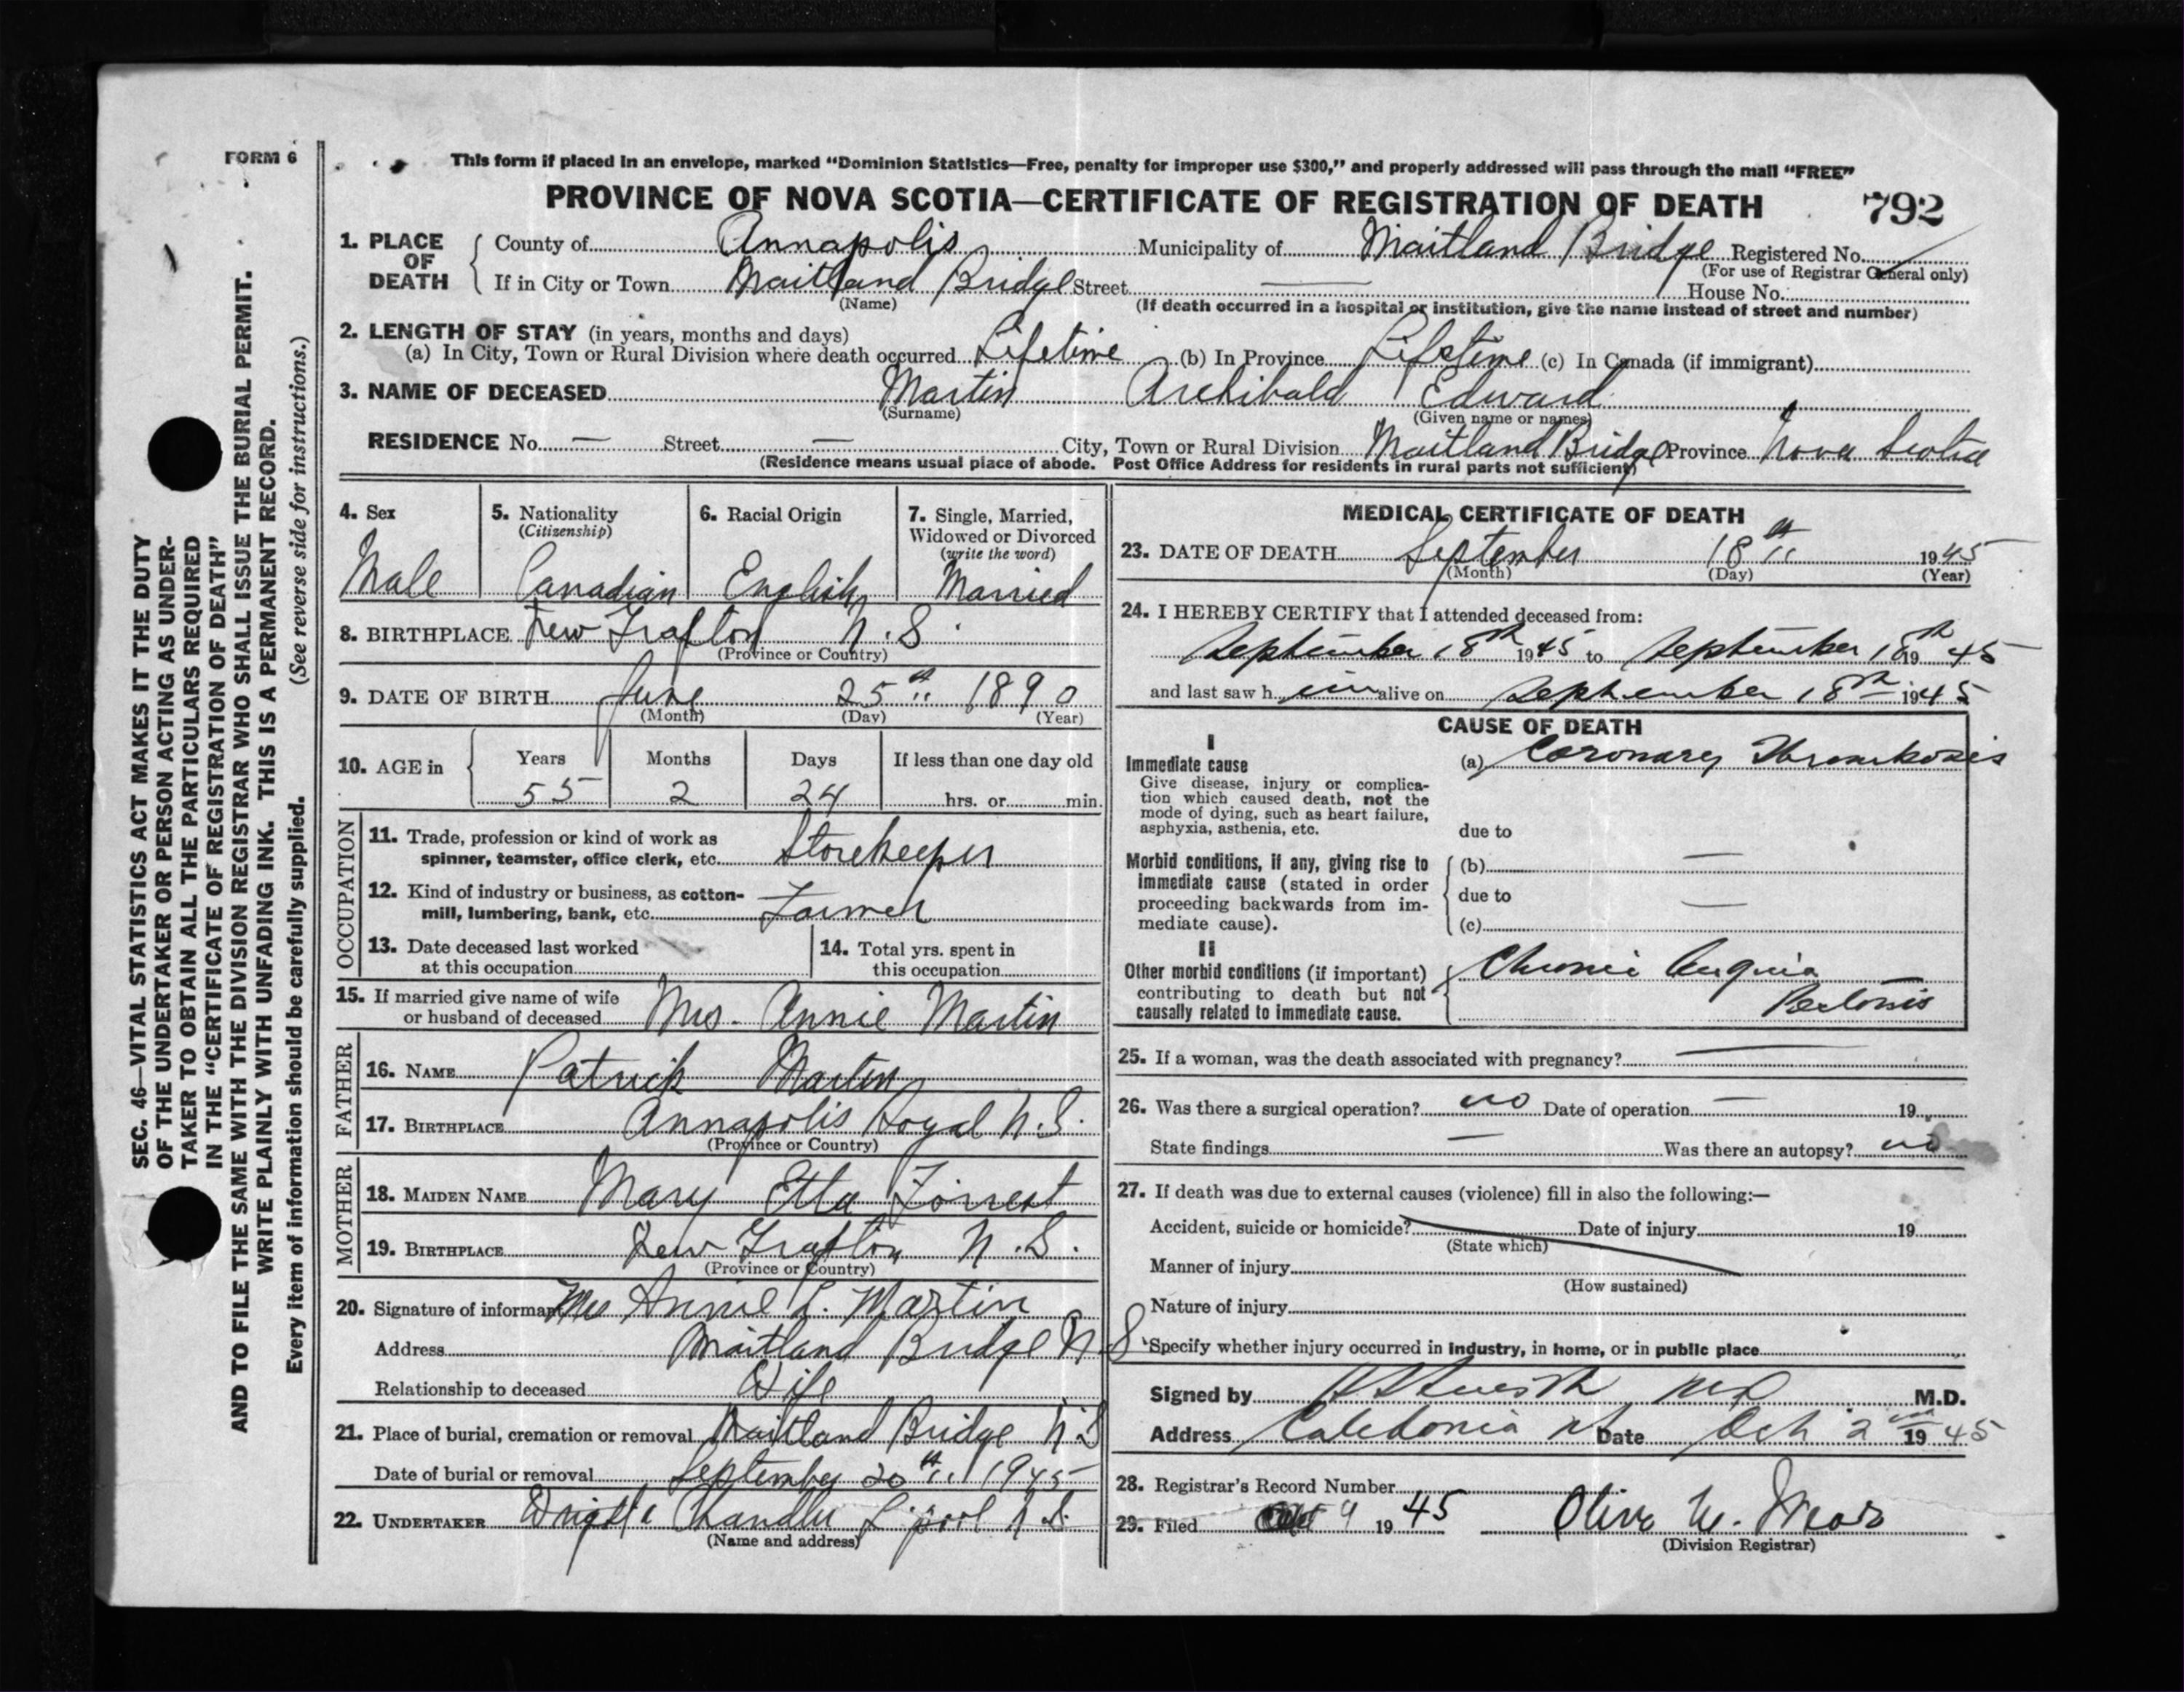 FORM 6
This form if placed in an envelope, marked “Dominion Statistics—Free, penalty for improper use $300,” and properly addressed will pass through the mail “FREE”
PROVINCE OF NOVA SCOTIA—CERTIFICATE OF REGISTRATION OF DEATH 792
1. PLACE OF DEATH County of Annapolis Municipality of Maitland Bridge Registered No.
(For use of Registrar General only)
If in City or Town Maitland Bridge Street — House No.
(Name) (If death occurred in a hospital or institution, give the name instead of street and number)
2. LENGTH OF STAY (in years, months and days)
(a) In City, Town or Rural Division where death occurred Lifetime (b) In Province Lifetime (c) In Canada (if immigrant)
3. NAME OF DECEASED Martin Archibald Edward
(Surname) (Given name or names)
RESIDENCE No. — Street — City, Town or Rural Division Maitland Bridge Province Nova Scotia
(Residence means usual place of abode. Post Office Address for residents in rural parts not sufficient)
4. Sex 5. Nationality 6. Racial Origin 7. Single, Married,
(Citizenship) Widowed or Divorced
(write the word)
Male Canadian English Married
8. BIRTHPLACE New Grafton N.S.
(Province or Country)
9. DATE OF BIRTH June 25th 1890
(Month) (Day) (Year)
10. AGE in Years Months Days If less than one day old
55 2 24 hrs. or min.
OCCUPATION
11. Trade, profession or kind of work as
spinner, teamster, office clerk, etc. Storekeeper
12. Kind of industry or business, as cotton-
mill, lumbering, bank, etc. Farmer
13. Date deceased last worked 14. Total yrs. spent in
at this occupation this occupation
15. If married give name of wife
or husband of deceased Mrs. Annie Martin
FATHER
16. NAME Patrick Martin
17. BIRTHPLACE Annapolis Royal N.S.
(Province or Country)
MOTHER
18. MAIDEN NAME Mary Etta Forrest
19. BIRTHPLACE New Grafton N.S.
(Province or Country)
20. Signature of informant Mrs Annie L. Martin
Address Maitland Bridge N.S
Relationship to deceased Wife
21. Place of burial, cremation or removal Maitland Bridge N.S
Date of burial or removal September 20th 1945
22. UNDERTAKER Chandler L'pool N.S.
(Name and address)
MEDICAL CERTIFICATE OF DEATH
23. DATE OF DEATH September 18th 1945
(Month) (Day) (Year)
24. I HEREBY CERTIFY that I attended deceased from:
September 18th 1945 to September 18th 1945
and last saw h im alive on September 18th 1945
CAUSE OF DEATH
I
Immediate cause (a) Coronary Thrombosis
Give disease, injury or complica-
tion which caused death, not the
mode of dying, such as heart failure,
asphyxia, asthenia, etc. due to
Morbid conditions, if any, giving rise to (b) —
immediate cause (stated in order
proceeding backwards from im- due to —
mediate cause). (c)
II
Other morbid conditions (if important) Chronic Angina
contributing to death but not Pectoris
causally related to immediate cause.
25. If a woman, was the death associated with pregnancy? —
26. Was there a surgical operation? no Date of operation — 19
State findings — Was there an autopsy? no
27. If death was due to external causes (violence) fill in also the following:—
Accident, suicide or homicide? Date of injury 19
(State which)
Manner of injury
(How sustained)
Nature of injury
Specify whether injury occurred in industry, in home, or in public place
Signed by M.D.
Address Caledonia Date Oct 2nd 1945
28. Registrar's Record Number
29. Filed Oct 9 1945 Olive
(Division Registrar)
SEC. 46—VITAL STATISTICS ACT MAKES IT THE DUTY
OF THE UNDERTAKER OR PERSON ACTING AS UNDER-
TAKER TO OBTAIN ALL THE PARTICULARS REQUIRED
IN THE “CERTIFICATE OF REGISTRATION OF DEATH”
AND TO FILE THE SAME WITH THE DIVISION REGISTRAR WHO SHALL ISSUE THE BURIAL PERMIT.
WRITE PLAINLY WITH UNFADING INK. THIS IS A PERMANENT RECORD.
Every item of information should be carefully supplied. (See reverse side for instructions.)